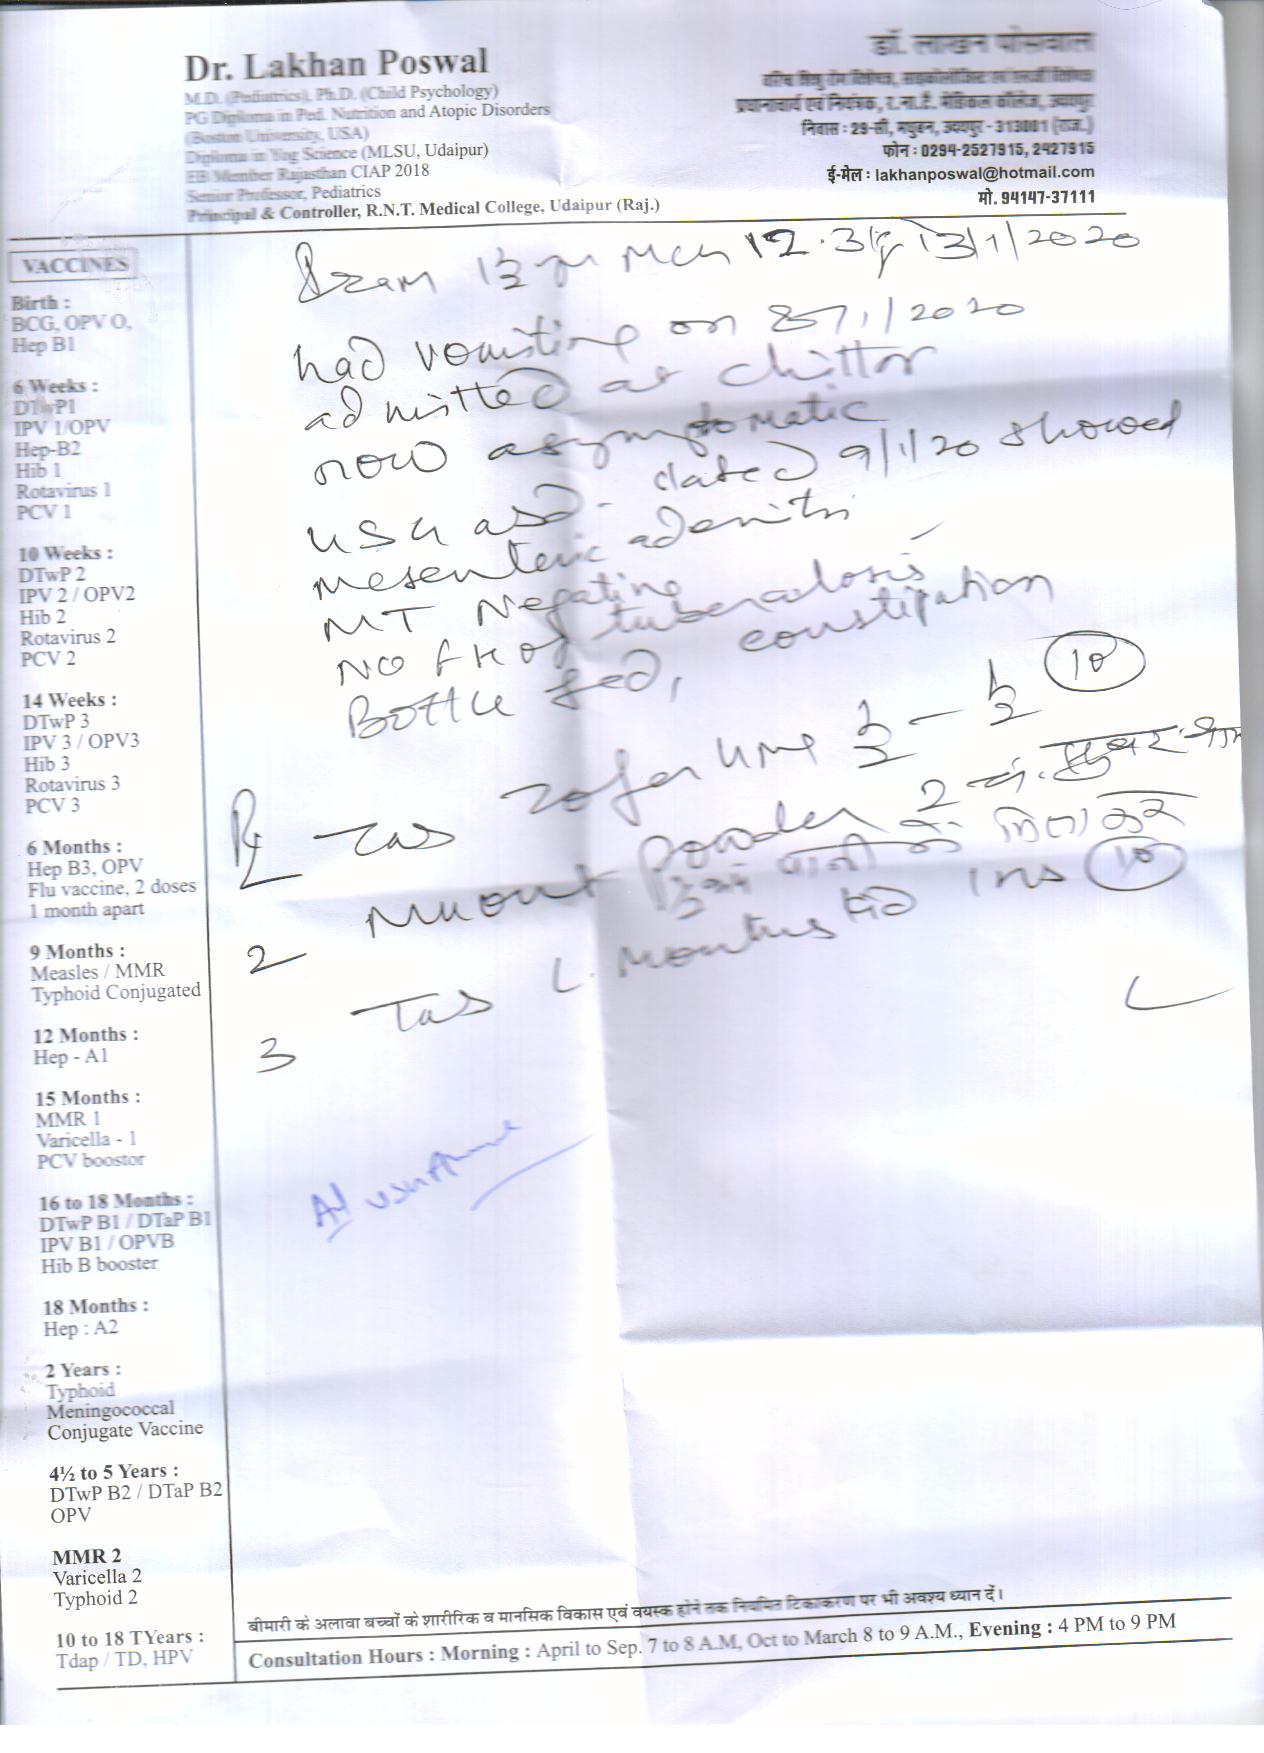 Dr. Lakhan Poswal
M.D. (Pediatrics), Ph.D. (Child Psychology)
PG Diploma in Ped. Nutrition and Atopic Disorders
(Boston University, USA)
Diploma in Yog Science (MLSU, Udaipur)
EB Member Rajasthan CIAP 2018
Senior Professor, Pediatrics
Principal & Controller, R.N.T. Medical College, Udaipur (Raj.)
डॉ. लाखन पोसवाल
वरिष्ठ शिशु रोग विशेषज्ञ, साइकोलोजिस्ट एवं एलर्जी विशेषज्ञ
प्रधानाचार्य एवं नियंत्रक, र.ना.टै. मेडिकल कॉलेज, उदयपुर
निवास : 29-सी, मधुबन, उदयपुर - 313001 (राज.)
फोन : 0294-2527915, 2427915
ई-मेल : lakhanposwal@hotmail.com
मो. 94147-37111
VACCINES
Birth :
BCG, OPV O,
Hep B1
6 Weeks :
DTwP1
IPV 1/OPV
Hep-B2
Hib 1
Rotavirus 1
PCV 1
10 Weeks :
DTwP 2
IPV 2 / OPV2
Hib 2
Rotavirus 2
PCV 2
14 Weeks :
DTwP 3
IPV 3 / OPV3
Hib 3
Rotavirus 3
PCV 3
6 Months :
Hep B3, OPV
Flu vaccine, 2 doses
1 month apart
9 Months :
Measles / MMR
Typhoid Conjugated
12 Months :
Hep - A1
15 Months :
MMR 1
Varicella - 1
PCV boostor
16 to 18 Months :
DTwP B1 / DTaP B1
IPV B1 / OPVB
Hib B booster
18 Months :
Hep : A2
2 Years :
Typhoid
Meningococcal
Conjugate Vaccine
4½ to 5 Years :
DTwP B2 / DTaP B2
OPV
MMR 2
Varicella 2
Typhoid 2
10 to 18 TYears :
Tdap / TD, HPV
13/1/2020
had vomiting on 8/1/2020
admitted at chittor
now asymptomatic
USG abd- dated 9/1/20 showed
mesenteric adenitis
MT Negative
NO of tuberculosis
Bottle fed, constipation
Rx Tab ½ - ½ 10
2 powder 2
पानी में मिलाकर
3 Tab L. 10
बीमारी के अलावा बच्चों के शारीरिक व मानसिक विकास एवं वयस्क होने तक नियमित टिकाकरण पर भी अवश्य ध्यान दें।
Consultation Hours : Morning : April to Sep. 7 to 8 A.M, Oct to March 8 to 9 A.M., Evening : 4 PM to 9 PM